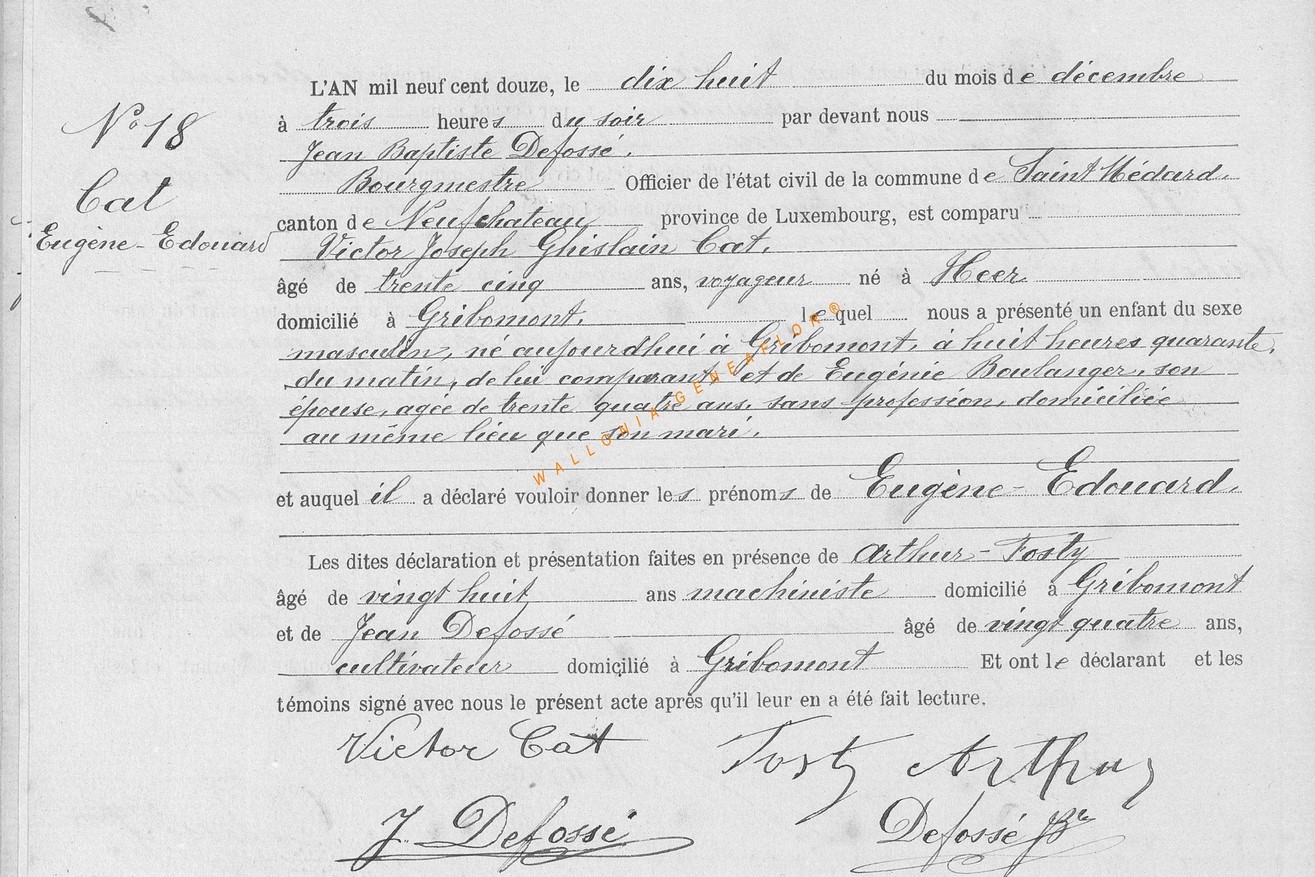 L'AN mil neuf cent douze, le dix huit du mois de décembre
à trois heures du soir par devant nous
Jean Baptiste Defossé.
Bourgmestre Officier de l'état civil de la commune de Saint Médard.
canton de Neufchateau province de Luxembourg, est comparu
Victor Joseph Ghislain Cat.
âgé de trente cinq ans, voyageur né à Heer
domicilié à Gribomont. lequel nous a présenté un enfant du sexe
masculin, né aujourdhui à Gribomont, à huit heures quarante.
du matin, de lui comparant, et de Eugénie Boulanger, son
épouse, agée de trente quatre ans, sans profession, domiciliée
au même lieu que son mari.
et auquel il a déclaré vouloir donner les prénoms de Eugène-Edouard.
Les dites déclaration et présentation faites en présence de Arthur-Fosty
âgé de vingt huit ans machiniste domicilié à Gribomont
et de Jean Defossé âgé de vingt quatre ans,
cultivateur domicilié à Gribomont Et ont le déclarant et les
témoins signé avec nous le présent acte après qu'il leur en a été fait lecture.
Victor Cat Fosty Arthur
J. Defossé Defossé JBte
N° 18
Cat
Eugène-Edouard
WALLONIA GENEAFLOR ®